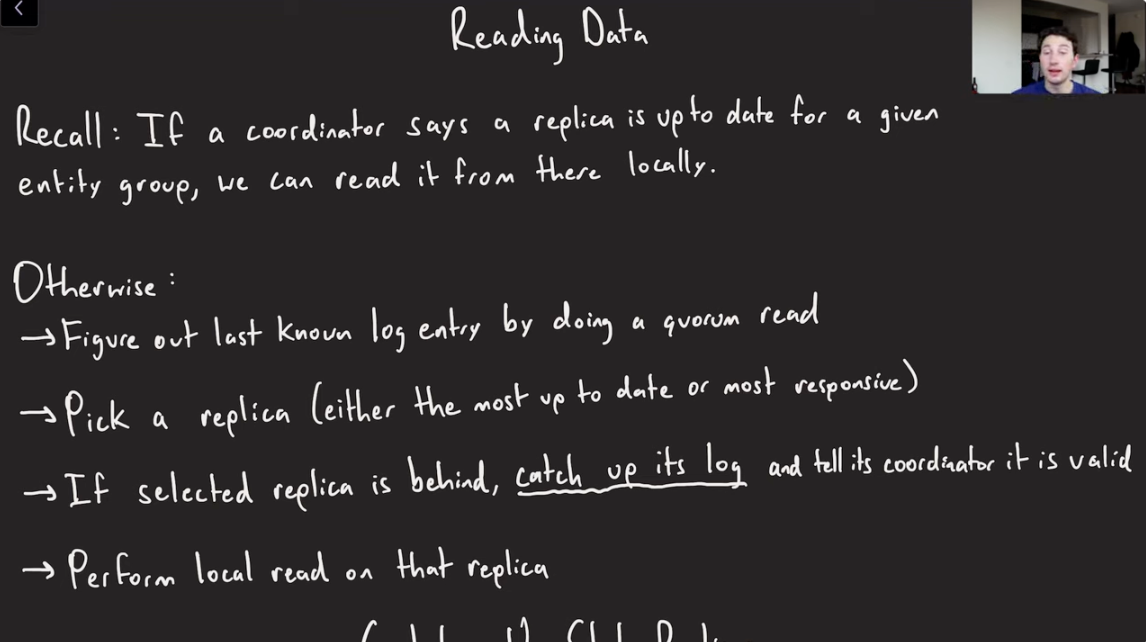 Reading Data
Recall: If a coordinator says a replica is up to date for a given
entity group, we can read it from there locally.
Otherwise:
→ Figure out last known log entry by doing a quorum read
→ Pick a replica (either the most up to date or most responsive)
→ If selected replica is behind, catch up its log and tell its coordinator it is valid
→ Perform local read on that replica